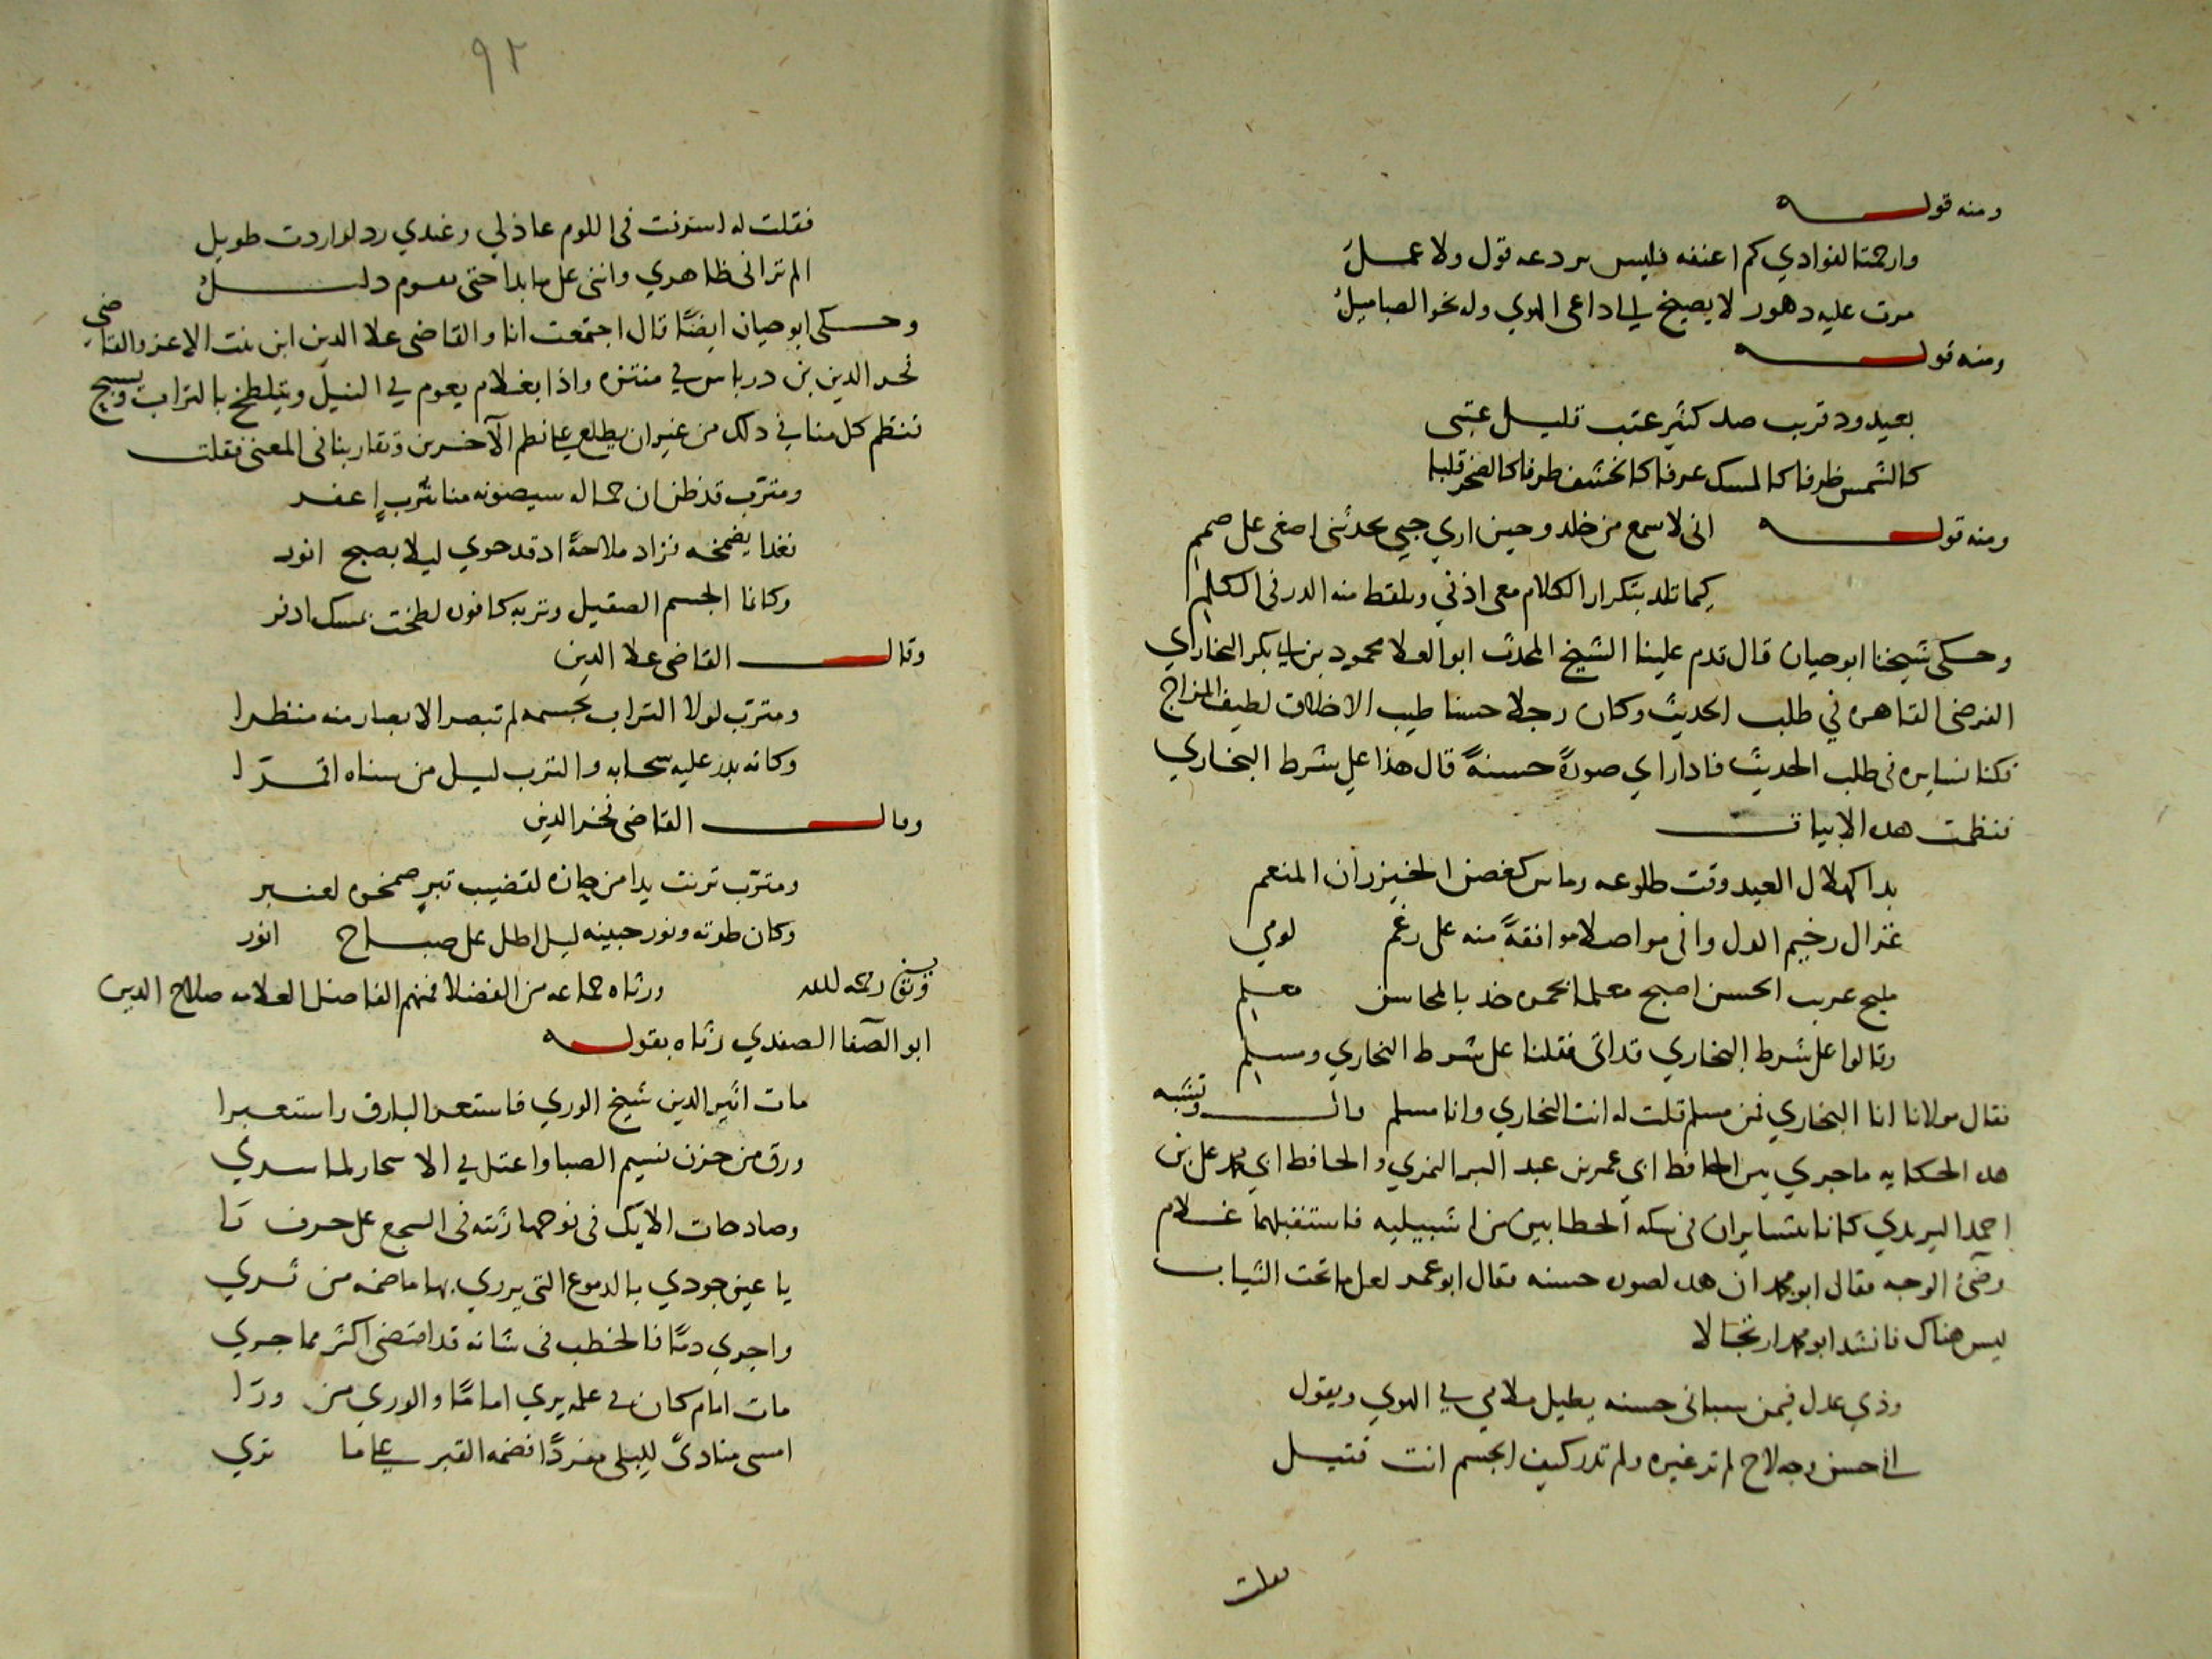 ومنه قوله
وارحمتا لفوادي كم اعنفه فليس يردعه قول ولا عمل
مرت عليه دهور لا يصيخ الى داعى الهوي وله نحو الصبا ميل
ومنه قوله
بعيد ود قريب صد كثير عتب قليل عتبى
كالشمس ظرفا كالمسك عرفا كالخشف طرفا كالصخر قلبا
ومنه قوله انى لاسمع من خلد وحين اري حبي يحدثنى اصغى على صمم
كيما تلد بتكرار الكلام معى اذني ويلقط منه الدر في الكلم
وحكى شيخنا ابو حيان قال قدم علينا الشيخ المحدث ابو العلا محمود بن ابي بكر البخاري
الفرضى القاهره في طلب الحديث وكان رجلا حسنا طيب الاخلاق لطيف المزاج
فكنا نسايره فى طلب الحديث فاذا راي صورةً حسنةً قال هذا على شرط البخاري
فنظمت هده الابيات
بدا كهلال العيد وقت طلوعه وماس كغصن الخيزران المنعم
غزال رخيم الدل وافى مواصلا موافقةً منه على رغم لومي
مليح غريب الحسن اصبح معلما بحمره خد بالمحاسن معلم
وقالوا على شرط البخاري قد اتى فقلنا على شرط البخاري ومسلم
فقال مولانا انا البخاري فمن مسلم قلت له انت البخاري وانا مسلم قال وتشبه
هده الحكايه ما جري بين الحافظ ابي عمر بن عبد البر النمري والحافظ ابي محمد على بن
احمد اليزيدي كانا يتسايران فى سكه الحطابين من اشبيليه فاستقبلهما غلام
وضئ الوجه فقال ابو محمد ان هده لصوره حسنه فقال ابو عمر لعل ما تحت الثياب
ليس هناك فانشد ابو محمد ارتجالا
وذي عدل فيمن سبانى حسنه يطيل ملامي في الهوي ويقول
افي حسن وجه لاح لم تر غيره ولم تدر كيف الجسم انت قتيل
فقلت
٩٢
فقلت له اسرفت فى اللوم عاذلي وعندي رد لو اردت طويل
الم تر انى ظاهري واننى على ما بدا حتى يقوم دليل
وحكى ابو حيان ايضًا قال اجتمعت انا والقاضى علا الدين ابن بنت الاعز والقاضي
فخر الدين بن درباس في منتزه واذا بغلام يعوم في النيل ويتلطخ بالتراب ويسبح
فنظم كل منا في ذلك من غير ان يطلع على نظم الآخرين وتقاربنا فى المعنى فقلت
ومترّب قد ظن ان جماله سيصونه منا بتُربٍ اعفر
فغدا يضمخه فزاد ملاحةً اذ قد حوي ليلا بصبح انور
وكانما الجسم الصقيل وتربه كافوره لطخت بمسك ادفر
وقال القاضى علا الدين
ومترّب لولا التراب بجسمه لم تبصر الابصار منه منظرا
وكانه بدر عليه سحابه والترب ليل من سناه اقمرّا
وقال القاضى فخر الدين
ومترّب تربت يدا من حازه لقضيب تبرٍ ضمخوه لعنبر
وكان طرته ونور جبينه ليل اطل على صباح انور
وتوفي رحمه الله ورثاه جماعه من الفضلا فمنهم الفاضل العلامه صلاح الدين
ابو الصفا الصفدي رثاه بقوله
مات اثير الدين شيخ الوري فاستعر البارق واستعبرا
ورق من حزن نسيم الصبا واعتل في الاسحار لما سري
وصادحات الايك فى نوحها رثته فى السجع على حرف را
يا عين جودي بالدموع التى يروي بها ما ضمه من ثري
واجري دمًا فالخطب فى شانه قد اقتضى اكثر مما جري
مات امام كان في علمه يري امامًا والوري من ورَا
امسى منادىً للبلى مفردًا فضمه القبر على ما تري